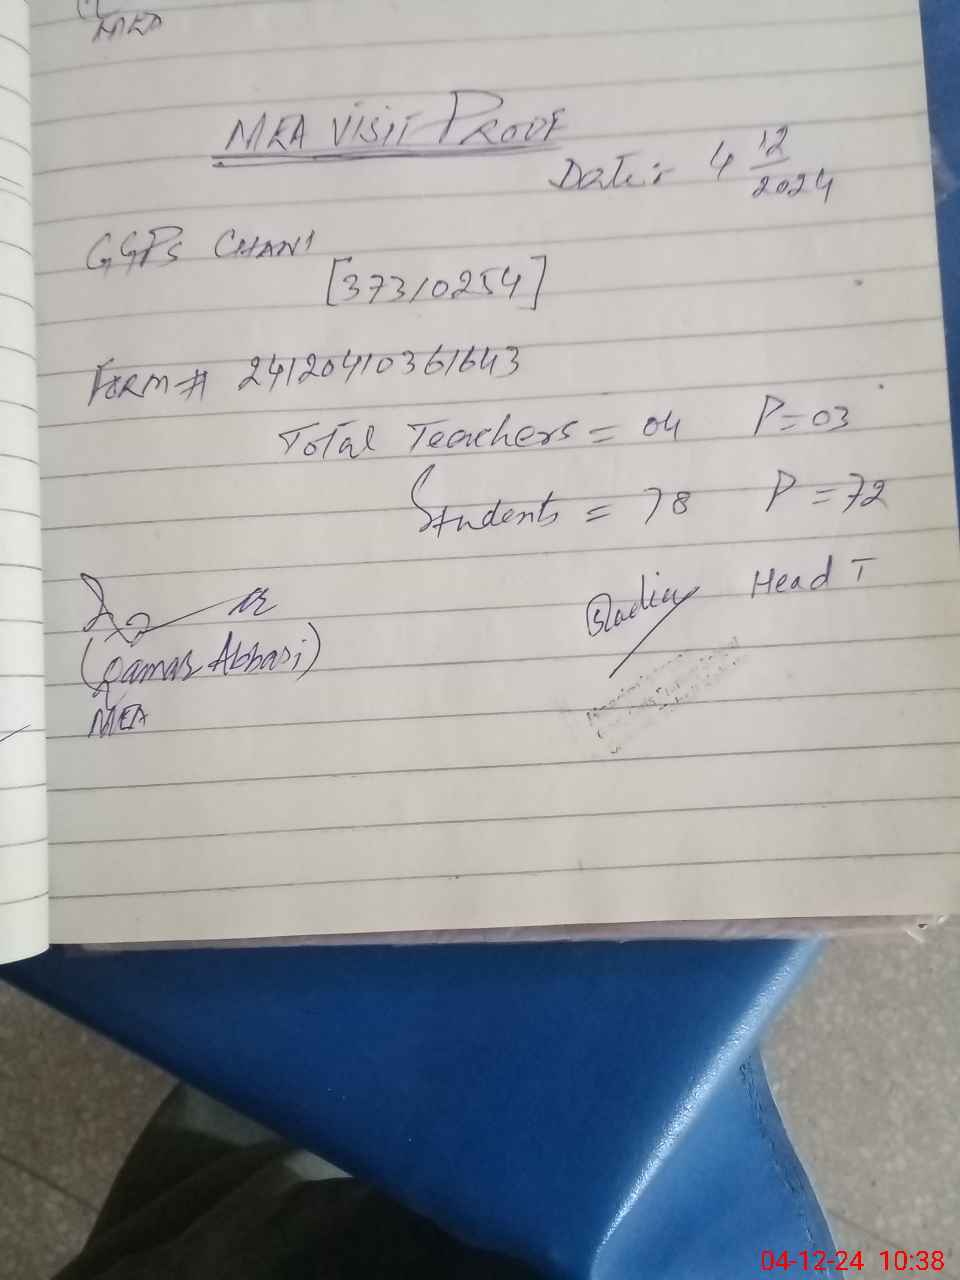 MEA
MEA VISIT PROOF
Date:- 4 12/2024
GGPS CHANI
[37310254]
FORM # 24120410361643
Total Teachers = 04 P=03
Students = 78 P=72
Head T
(Qamar Abbasi)
MEA
04-12-24 10:38